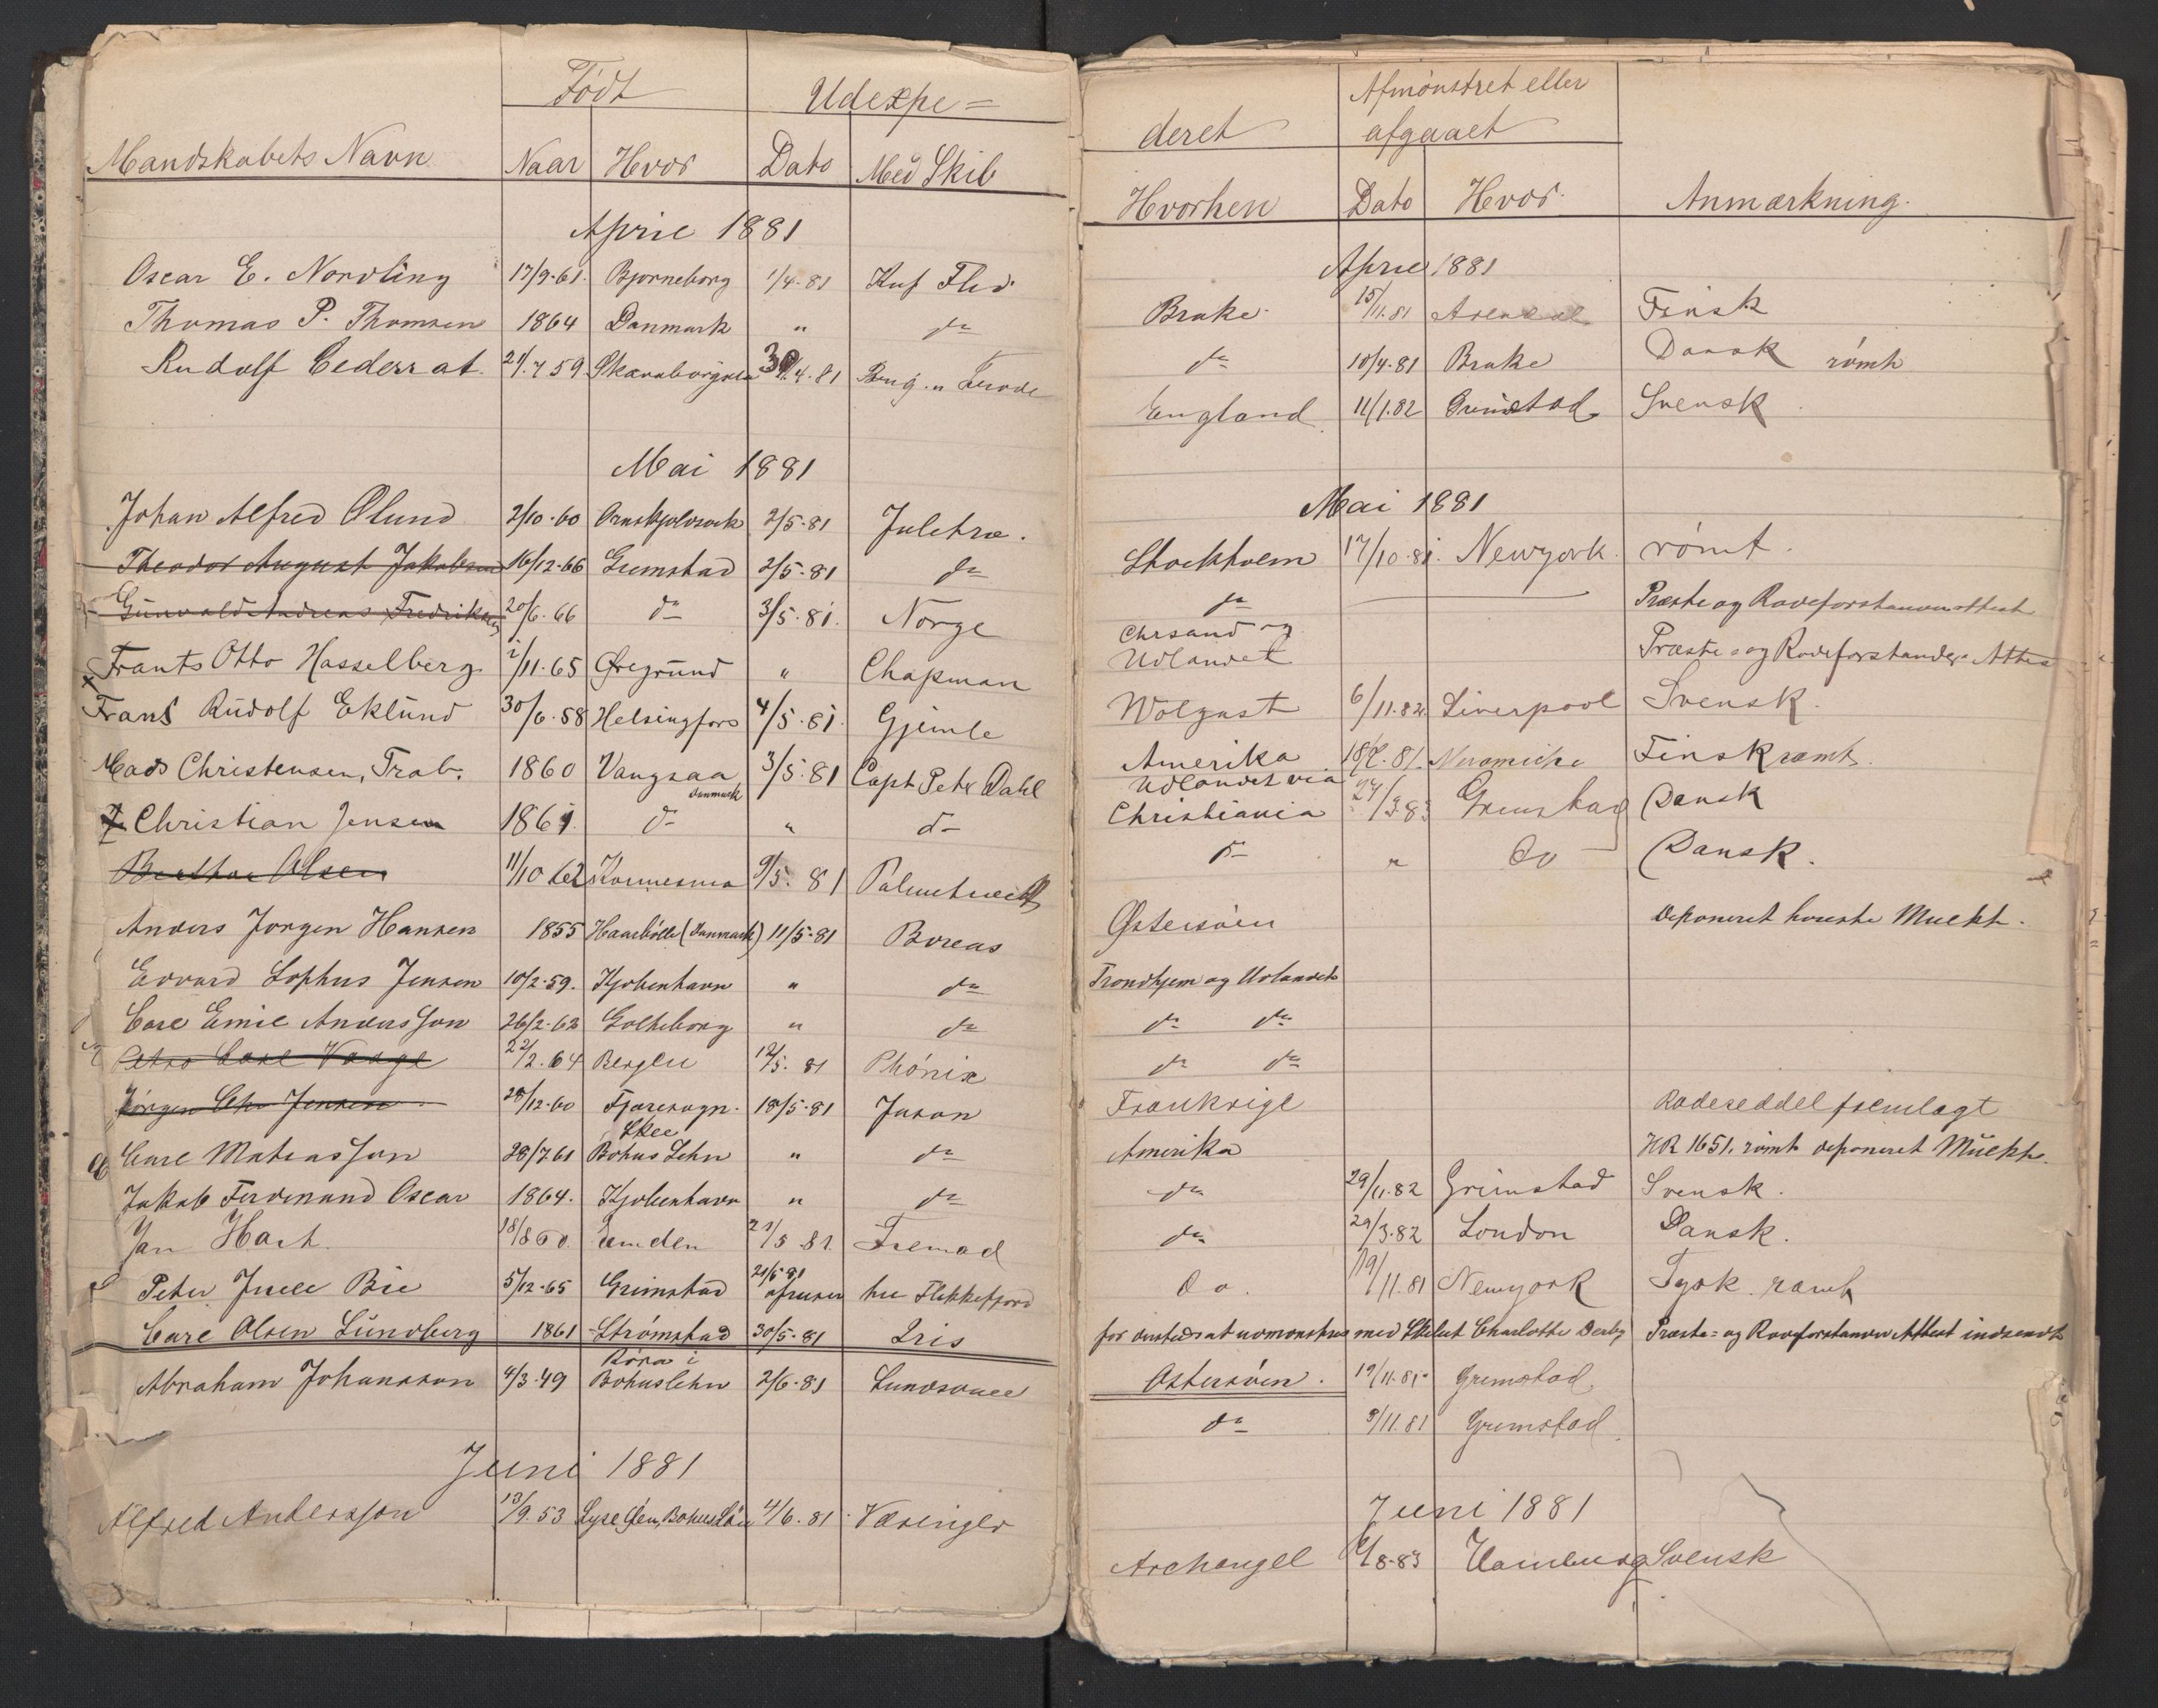 Født
Udexpe=
Mandskabets Navn Naar Hvor Dato Med Skib
April 1881
Oscar E. Nordling 17/9-61. Bjorneborg 1/4-81 Kuf Flid
Thomas P. Thomsen 1864 Danmark " do
Rudolf Cederrat. 21/7 59 30/4-81 Brig
Mai 1881
Johan Alfred Ølund 2/10-60 2/5-81 Juletræ.
Theodor August Jakobsen 16/12-66 Grimstad 2/5-81 do
Gunvald Andreas Fredriksen 20/6-66 do 3/5-81. Norge
Frants Otto Hasselberg 1/11-65 Øregrund " Chapman
Frans Rudolf Eklund 30/6-58 Helsingfors 4/5-81. Gjimle
Mads Christensen, Trab. 1860 Vangsaa 3/5-81 Capt Peter Dahl
Danmark
Christian Jensen 1861. do " do
Olsen 11/10 62 9/5. 81
Anders Jorgen Hansen 1855 Haarbølle (Danmark) 11/5-81 Boreas
Edvard Sophus Jensen 10/2-59. Kjobenhavn " do
Carl Emil Andersson 26/2-62 Gotheborg " do
Petro Carl Vaage 22/2-64 Bergen 12/5. 81 Phónix
Jörgen Chr Jensen 28/12-60 Fjæresogn. 18/5-81 Jason
Skee
Carl Matiasson 28/7 61 Bohus Lehn " do
Jakob Ferdinand Oscar 1864. Kjobenhavn " do
Jan Hart. 18/8 60. Emden 21/5 81. Fremad
21/5-81
Peter Juell Bie 5/12-65 Grimstad afreiser til Flekkefjord
Carl Olsen Lundberg 1861 Strömstad 30/5-81 Iris
Röra i
Abraham Johansson 4/3-49 Bohuslehn 2/6-81
Juni 1881
Alfred Andersson 13/9. 53 4/6. 81. Væringer
Afmönstret eller
deret afgaaet
Hvorhen Dato Hvor. Anmærkning.
April 1881
Brake. 15/11.81 Arendal Finsk
do 10/4-81 Brake Dansk römt
England 11/1.82 Grimstad Svensk
Mai 1881
Stockholm 17/10-81. Newyork. römt.
do Præste og Rodeforstanderattest
Chrsand og
Udlandet Præste- og Rodeforstander Attest
Wolgast 6/11.82 Liverpool Svensk.
Amerika 81. Finsk rømt.
Udlandet via
Christiania 27/3 83 Grimstad Dansk
do " Do Dansk.
Østersøen Deponeret Mulkt.
Trondhjem og Udlandet
do do
do do
Frankrige Rodeseddel fremlagt
Amerika HR 1651. römt deponeret Mulkt.
do 29/11.82 Grimstad Svensk.
do 29/3-82 London Dansk.
Do. 19/11.81 Newyork Tysk. rømt
for Ønsteds at udmønstres med Skibet Charlotte Derby Præste= og Rodeforstander Attest indsendt
Ostersöen. 19/11.81. Grimstad
do 9/11.81 Grimstad
Juni 1881
Archangel 8-83 Hamburg Svensk